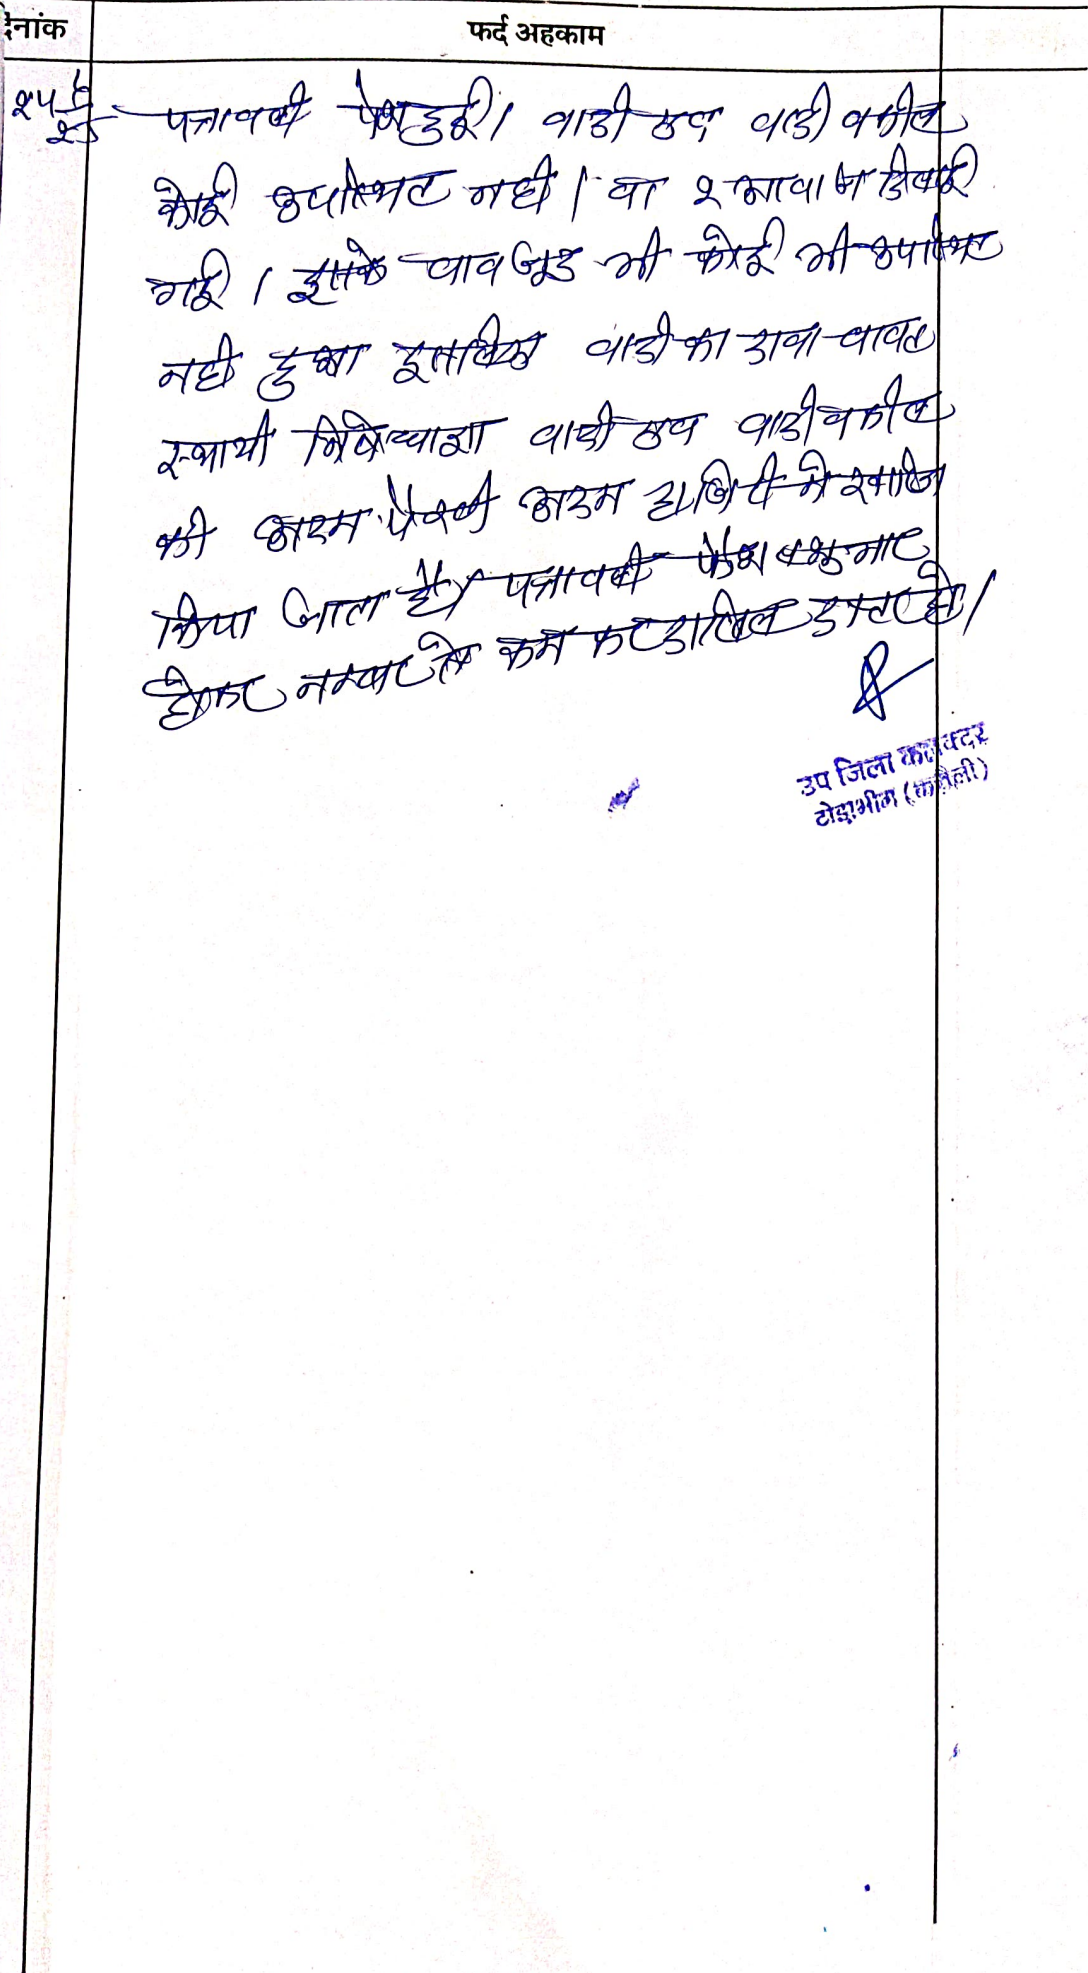 देनांक फर्द अहकाम
२५/६/२५ पत्रावली पेश हुई। वादी एवं वादी वकील
कोई उपस्थित नहीं। वा २ आवाज दिलाई
गई। इसके बावजूद भी कोई भी उपस्थित
नहीं हुआ इसलिए वादी का दावा बाबत
स्थायी निषेधाज्ञा वादी एवं वादी वकील
की अदम पैरवी अदम हाजिरी मे खारिज
किया जाता है। पत्रावली फैसल शुमार
होकर नम्बर से कम कर दाखिल दफ्तर हो।
उप जिला कलक्टर
टोडाभीम (करौली)